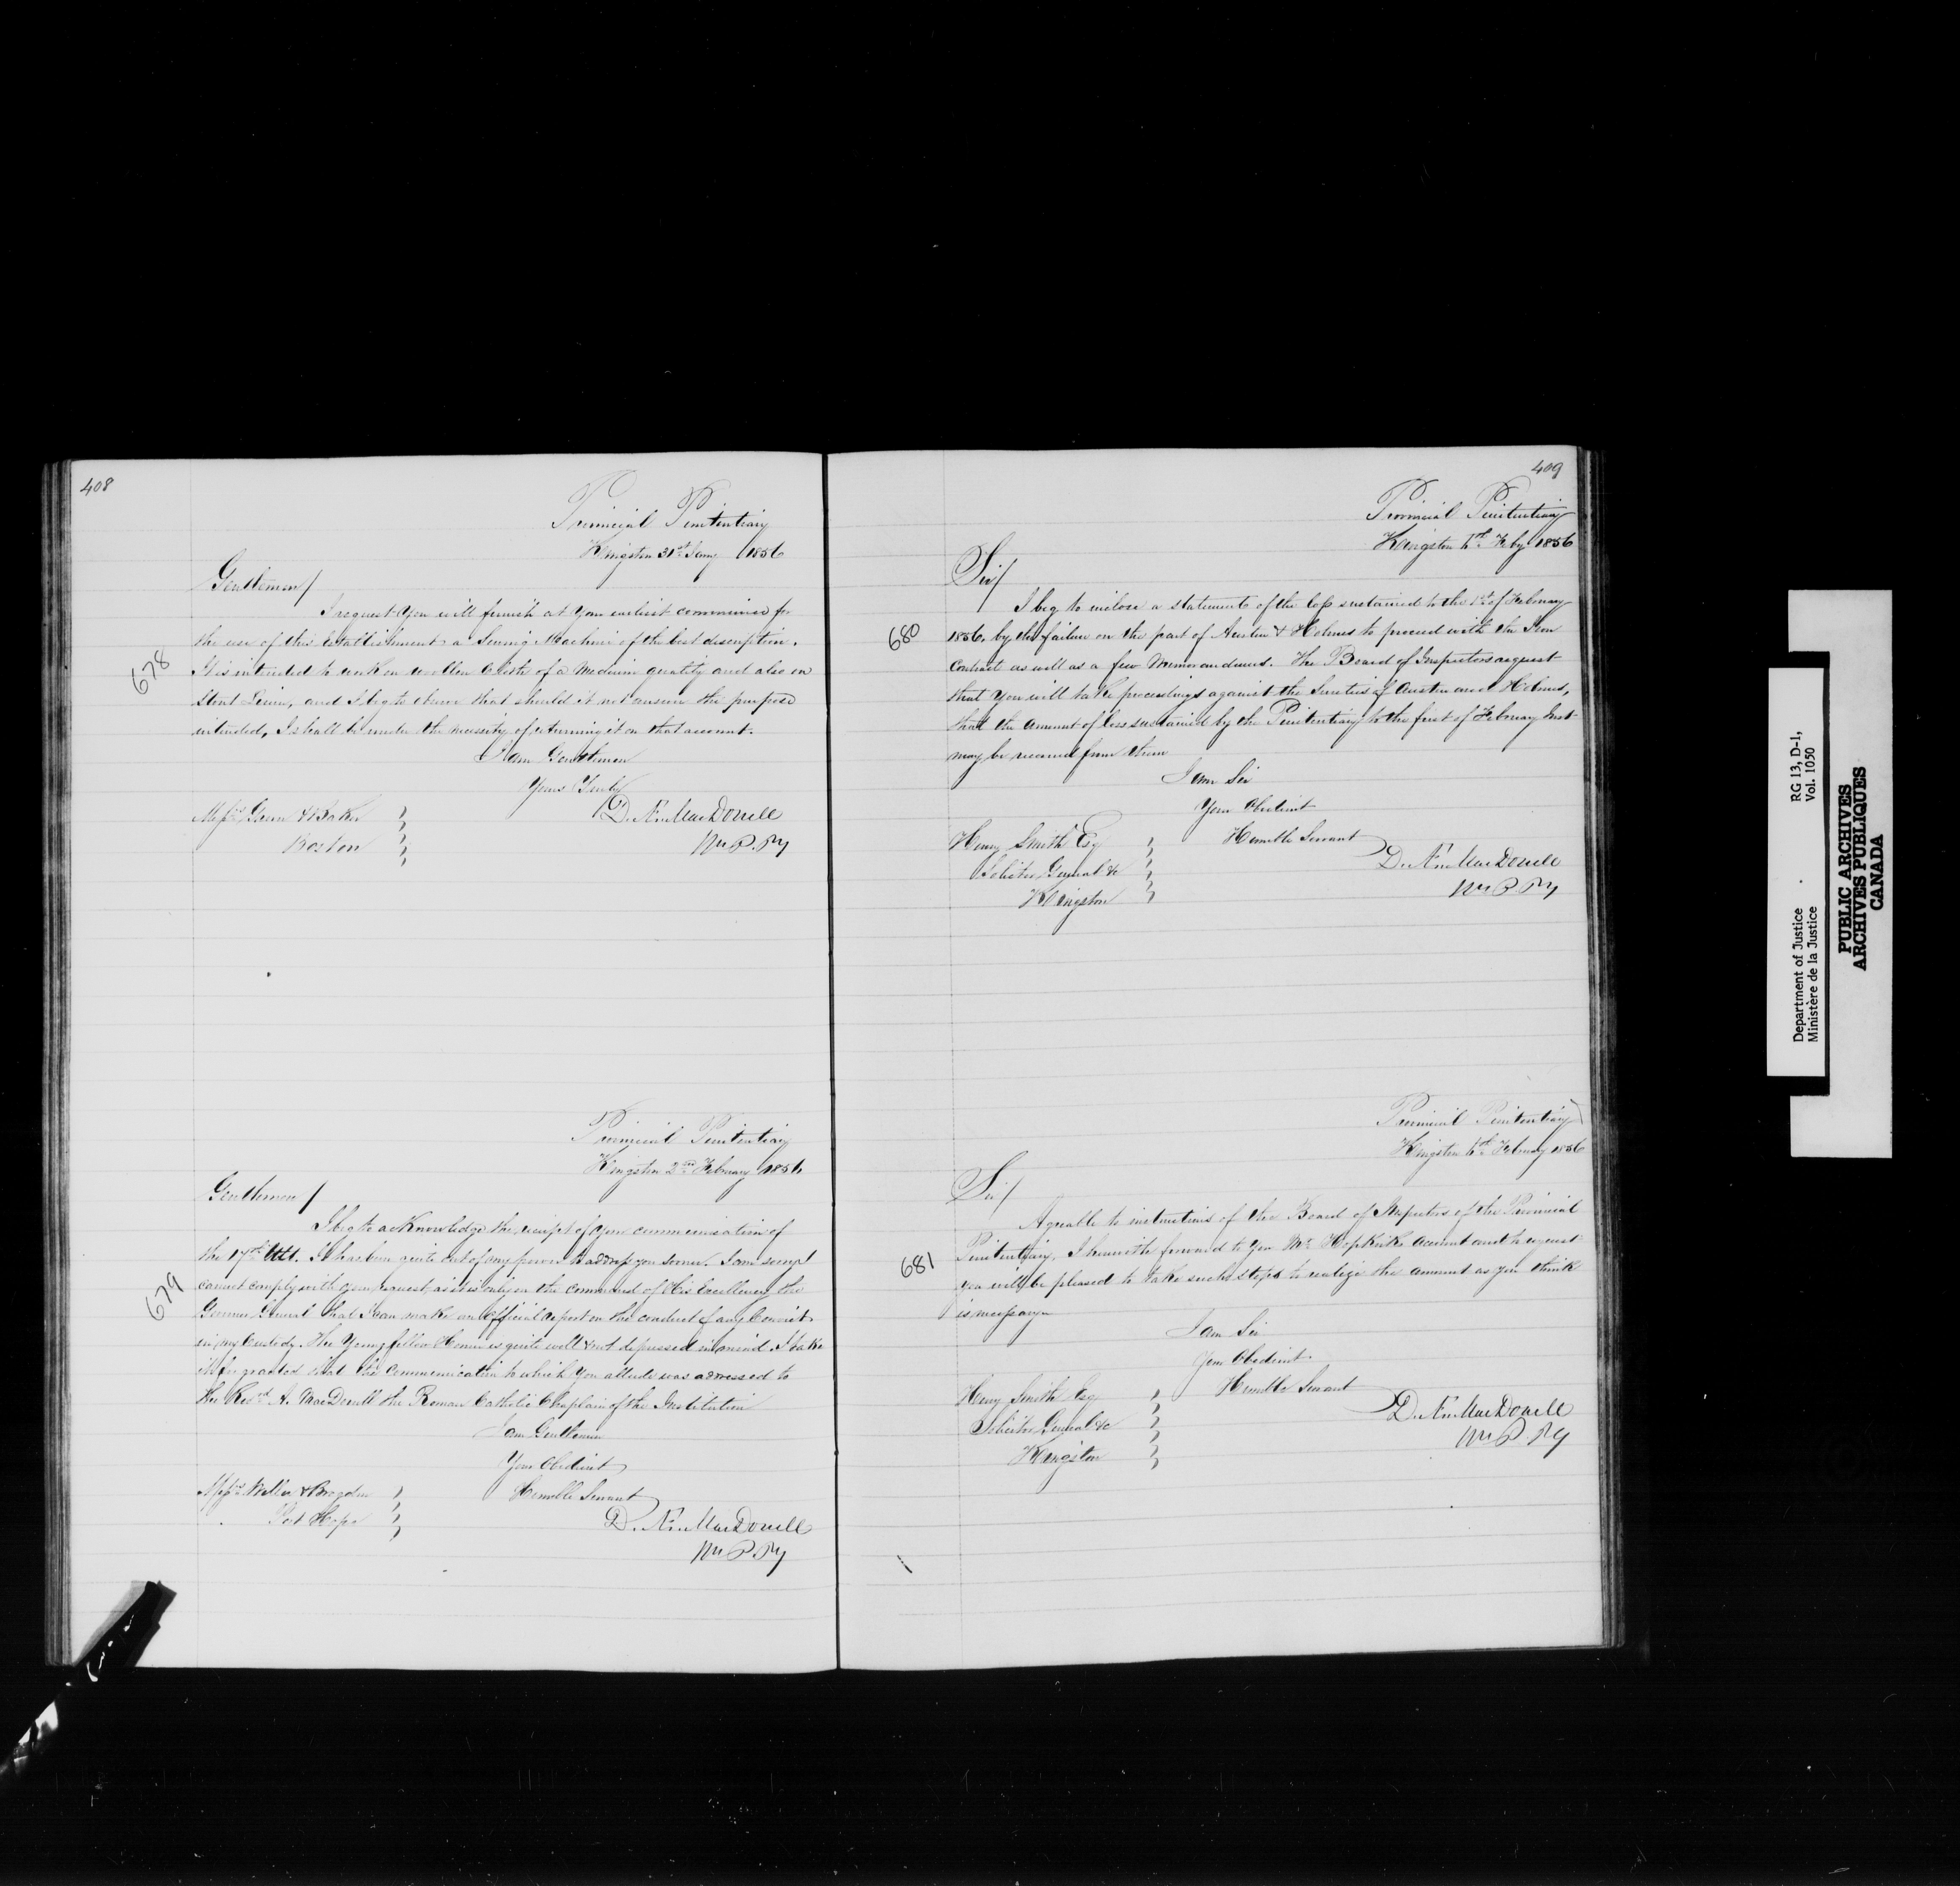 408
Provincial Penitentiary
Kingston 31st Jany 1856
Gentlemen/
678
I request You will furnish at Your earliest convenience for
the use of this Establishment a Sewing Machine of the best description.
It is intended to work on woollen Cloth of a Medium quality and also on
Stout Linen, and I beg to observe that should it not answer the purpose
intended, I shall be under the necessity of returning it on that account.
I am Gentlemen
Yours Truly
D. Æn. MacDonell
Wn P. Py
Messrs Green & Baker
Boston
Provincial Penitentiary
Kingston 2nd February 1856
Gentlemen/
679
I beg to acknowledge the receipt of your communication of
the 17th Ult. It has been quite out of my power to address you sooner. I am sorry I
cannot comply with your request, as it is only on the command of His Excellency the
Governor General that I can make an official report on the conduct of any Convict
in my Custody. The Young fellow is quite well & not depressed in mind. I take
it for granted that the Communication to which You allude was addressed to
the Revd A. MacDonell the Roman Catholic Chaplain of the Institution
I am Gentlemen
Your Obedient
Humble Servant
D. Æn. MacDonell
Wn P. Py
Messrs &
Port Hope
409
Provincial Penitentiary
Kingston Feby 1856
Sir/
680
I beg to inclose a statement of the loss sustained to the 1st of February
1856, by the failure on the part of Austin & Holmes to proceed with the Iron
Contract as well as a few Memorandums. The Board of Inspectors request
that You will take proceedings against the Sureties of Austin and Holmes,
that the amount of loss sustained by the Penitentiary to the first of February Inst
may be recovered from them
I am Sir
Your Obedient
Humble Servant
D. Æn. MacDonell
Wn P. Py
Henry Smith Esq
Solicitor General &c
Kingston
Provincial Penitentiary
Kingston February 1856
Sir/
681
Agreeable to instructions of the Board of Inspectors of the Provincial
Penitentiary, I herewith forward to You Mr Hopkirks Account and to request
you will be pleased to take such steps to realize the amount as you think
is necessary
I am Sir
Your Obedient
Humble Servant
D. Æn. MacDonell
Wn P. Py
Henry Smith Esq
Solicitor General &c
Kingston
RG 13, D-1,
Vol. 1050
Department of Justice
Ministère de la Justice
PUBLIC ARCHIVES
ARCHIVES PUBLIQUES
CANADA